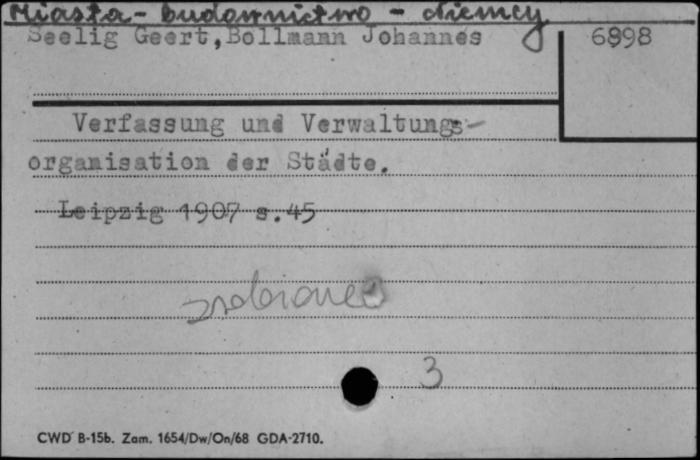 Miasta - budownictwo - Niemcy
Seelig Geert, Bollmann Johannes
6898
Verfassung und Verwaltungs-
organisation der Städte.
Leipzig 1907 s.45
zrobione
3
CWD B-15b. Zam. 1654/Dw/On/68 GDA-2710.